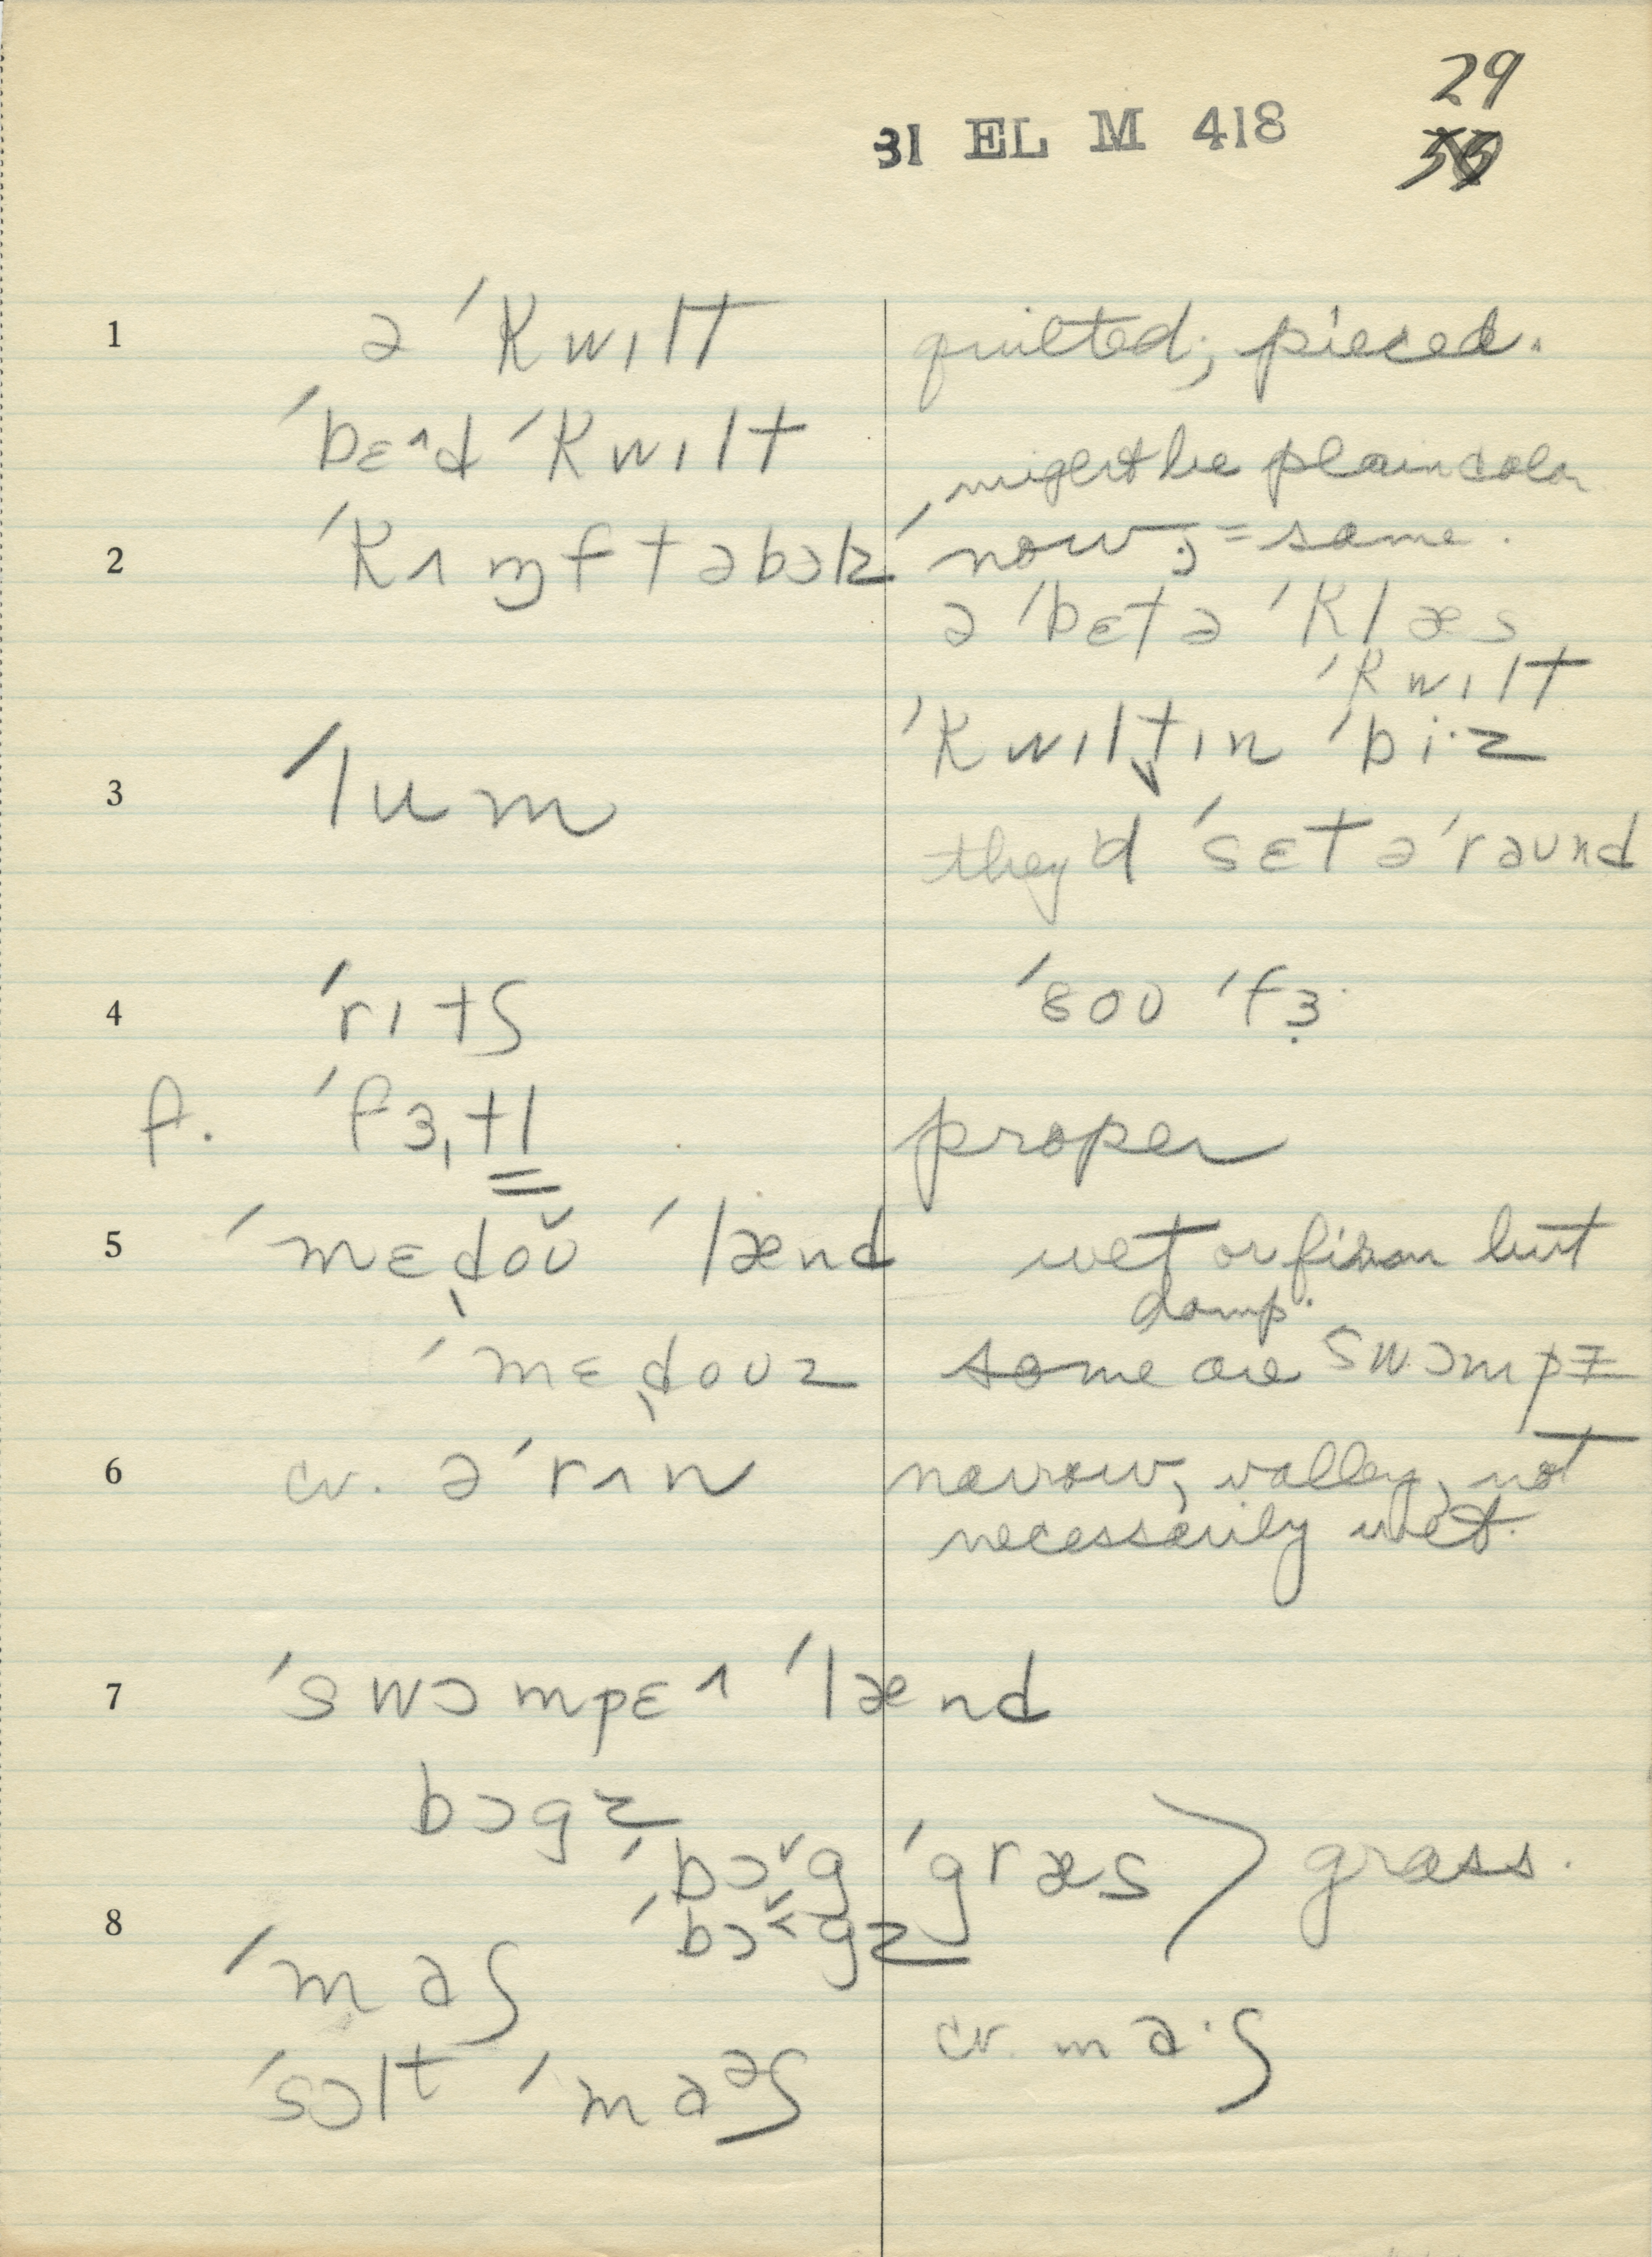 29
31 EL M 418
1 ə ˈkwɪlt quilted; pieced.
ˈbɛ^d ˈkwɪlt might be plain color
2 ˈkʌmftəbəlz now; = same.
ə ˈbɛtə ˈklæs
ˈkwɪlt
ˈkwɪltɪn ˈbi·z
3 ˈlum
they'd ˈsɛt əˈraund
4 ˈrɪtʃ ˈsoʊ ˈfɜ·
f. ˈfɜ,tl proper
5 ˈmɛdoʊ̌ ˈlænd wet or firm but
damp.
ˈmɛdoʊz some are swɔmpz
6 cv. əˈrʌn narrow, valley, not
necessarily wet.
7 ˈswɔmpɛ^ ˈlænd
bɔgz
ˈbɔˇg ˈgræs grass.
8 ˈbɔˇ˂gz
ˈmaʃ
cv. ma·ʃ
ˈsɔlt ˈmaᵊʃ